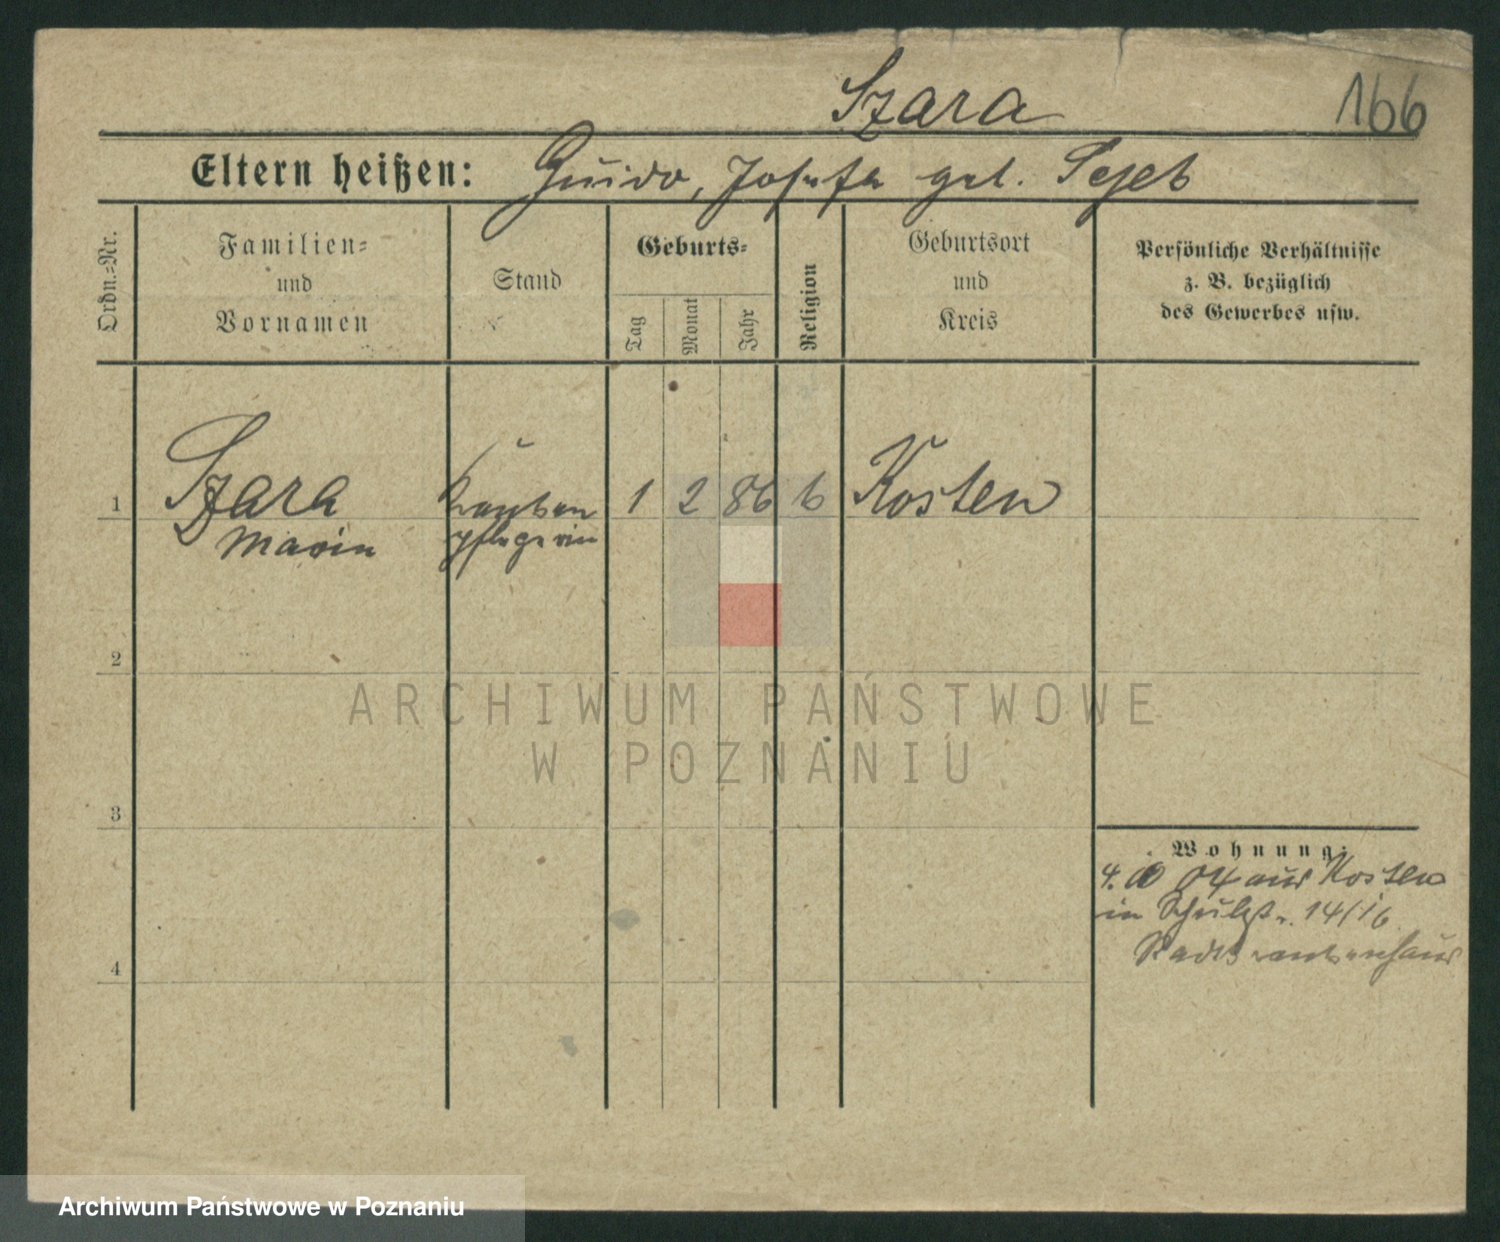 Szara
166
Eltern heißen: Guido, Josefa geb.
Ordn.=Nr.
Familien=
und
Vornamen
Stand
Geburts=
Tag
Monat
Jahr
Religion
Geburtsort
und
Kreis
Persönliche Verhältnisse
z. B. bezüglich
des Gewerbes usw.
1
Szara
Maria
Kranken
pflegerin
1 2 86
Kosten
2
3
4
Wohnung:
4. 04 aus Kosten
in Schulstr. 14/16
Stadtkrankenhaus
ARCHIWUM PAŃSTWOWE
W POZNANIU
Archiwum Państwowe w Poznaniu